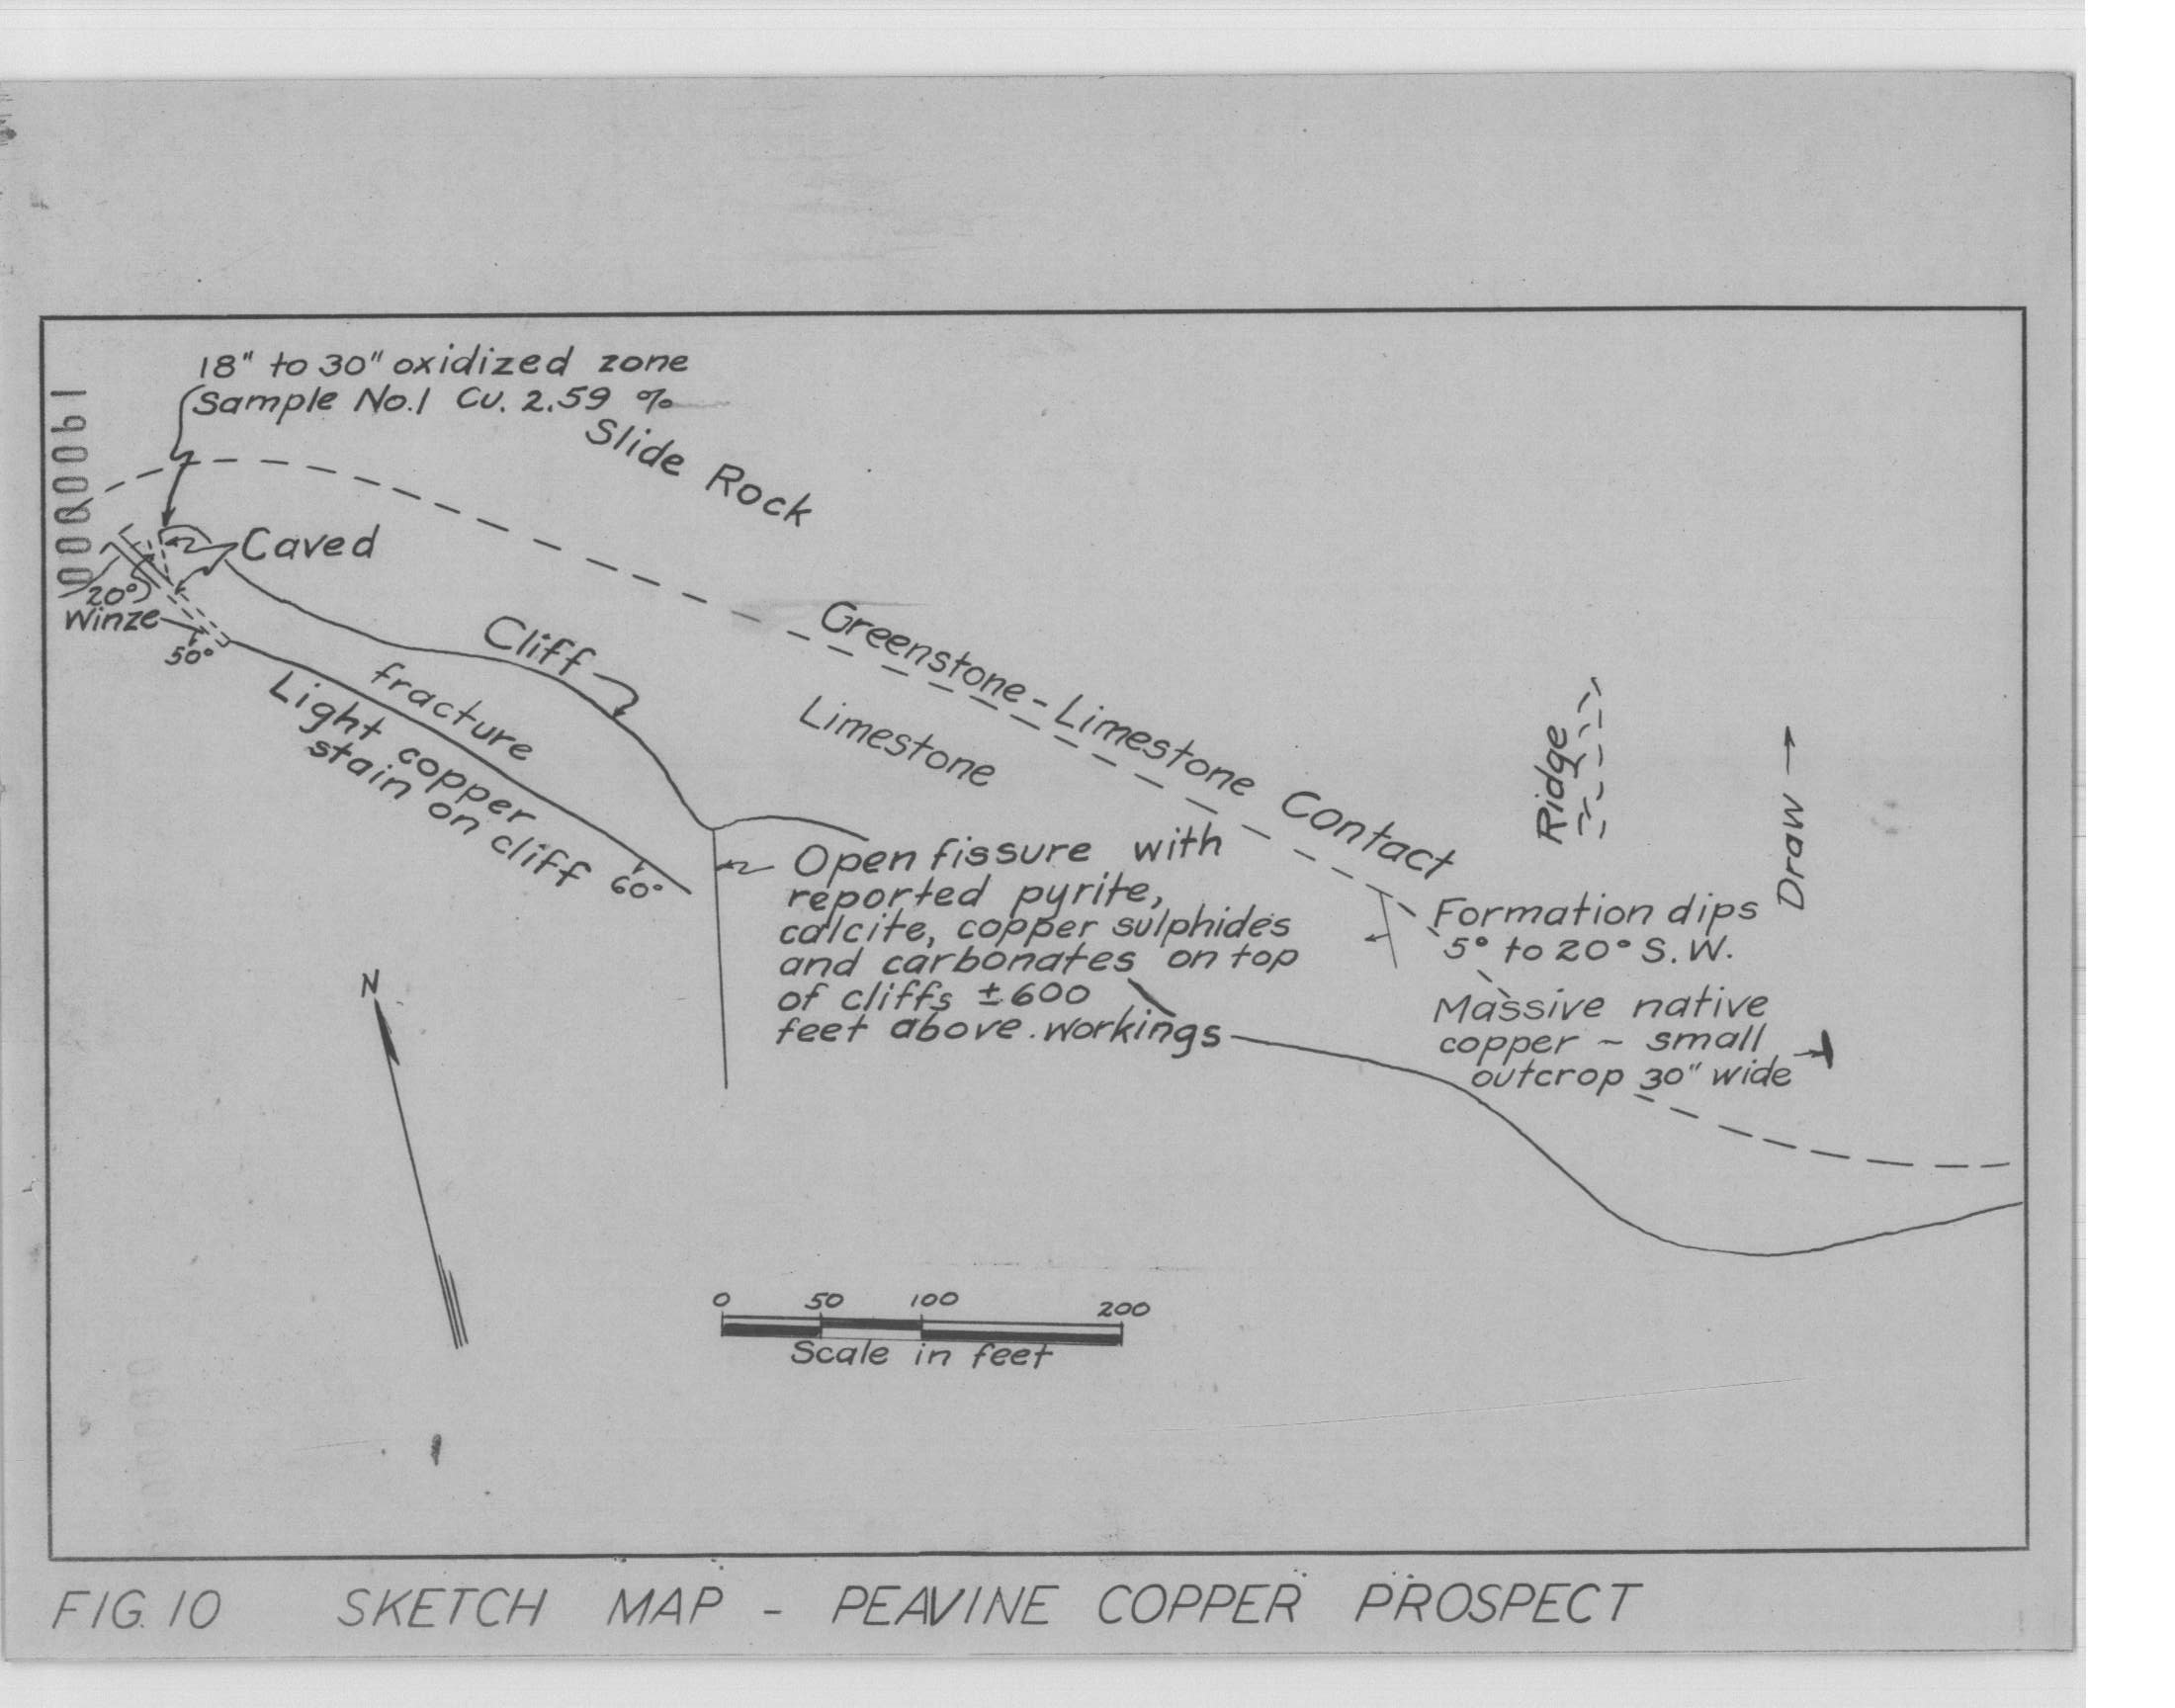 18" to 30" oxidized zone
Sample No.1 Cu. 2.59 %
Slide Rock
Caved
20°
Winze
50°
Cliff
fracture
Light copper
stain on cliff
60°
Greenstone-Limestone Contact
Limestone
Open fissure with
reported pyrite,
calcite, copper sulphides
and carbonates on top
of cliffs ±600
feet above workings
Ridge
Draw
Formation dips
5° to 20° S.W.
Massive native
copper - small
outcrop 30" wide
N
0 50 100 200
Scale in feet
FIG. 10 SKETCH MAP - PEAVINE COPPER PROSPECT